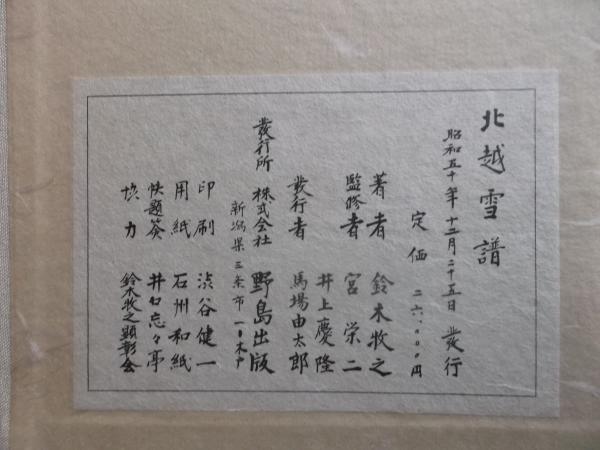 北越雪譜
昭和五十年十二月二十五日 發行
定価 二六〇〇〇円
著者 鈴木牧之
監修者 宮栄二
井上慶隆
發行者 馬場由太郎
發行所 株式会社 野島出版
新潟県三条市一ノ木戸
印刷 渋谷健一
用紙 石州和紙
帙題簽 井口忘々亭
協力 鈴木牧之顕彰会